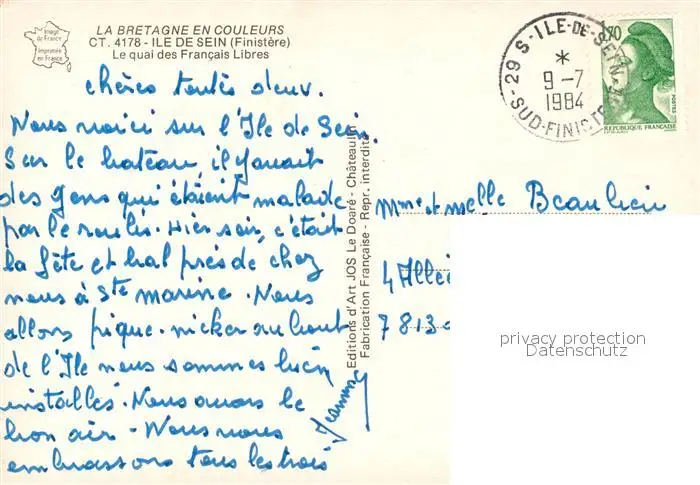 Image
de France
imprimée
en France
LA BRETAGNE EN COULEURS
CT. 4178 - ILE DE SEIN (Finistère)
Le quai des Français Libres
chères toutes deux.
Nous voici sur l'Ile de Sein.
Sur le bateau, il y avait
des gens qui étaient malade
par le roulis. Hier soir, c'était
la fête et bal près de chez
nous à Ste marine. Nous
allons pique-niker au bout
de l'Ile nous sommes bien
installés. Nous avons le
bon air - Nous vous
embrassons tous les trois
Editions d'Art JOS Le Doaré - Châteaulin
Fabrication Française - Repr. interdite
29 S-ILE-DE-SEIN
*
9-7
1984
SUD-FINISTERE
1,70
POSTES
REPUBLIQUE FRANÇAISE
Mme et Melle Beaulieu
4 Allée
7813
privacy protection
Datenschutz